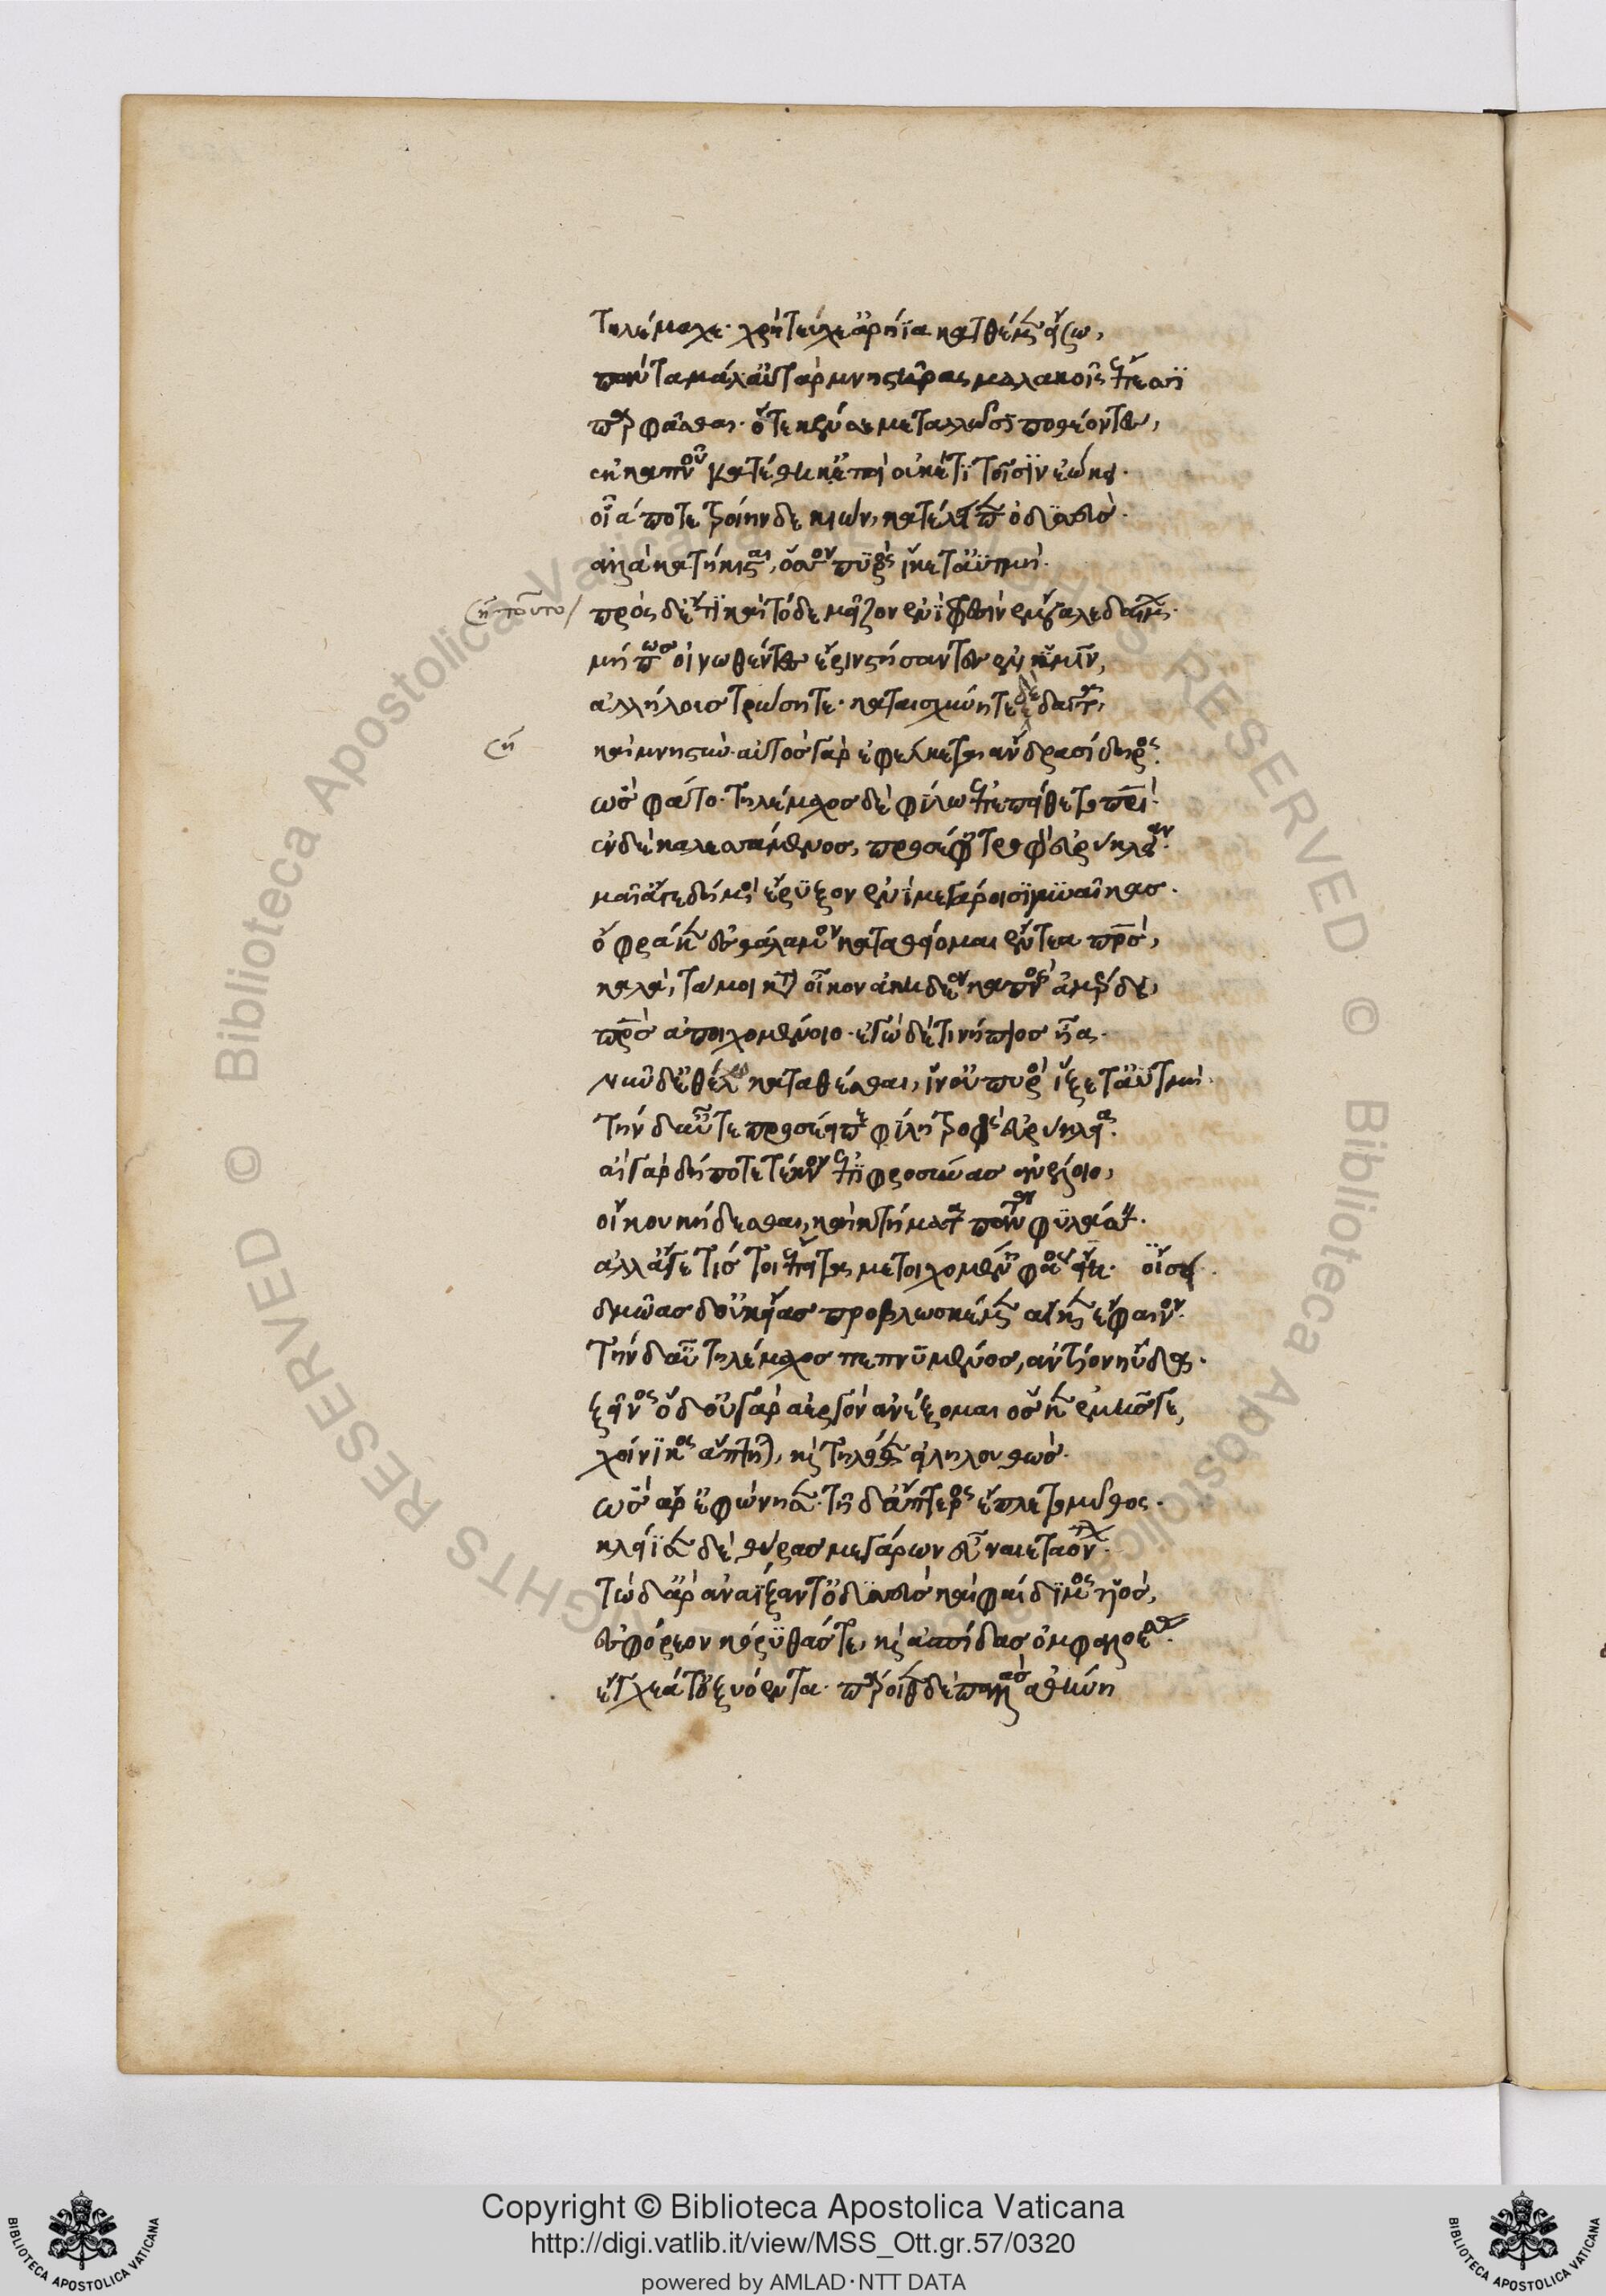 τηλέμαχε· χρὴ τεύχε ἀρήϊα κατθέμεν εἴσω,
πάντα μάλ' αὐτὰρ μνηστῆρας μαλακοῖς ἐπέεσσι
παρφάσθαι· ὅτε κέν σε μεταλλῶσι ποθέοντες,
ἐκ καπνοῦ κατέθηκ' ἐπεὶ οὐκέτι τοῖσιν ἐώκει·
οἷά ποτε τροίηνδε κιὼν, κατέλειπεν ὀδυσσεύς·
ἀλλὰ κατῄκισται, ὅσσον πυρὸς ἵκετ' ἀϋτμή·
ση τοῦτο
πρὸς δ' ἔτι καὶ τόδε μεῖζον ἐνὶ φρεσὶν ἔμβαλε δαίμων·
μή πως οἰνωθέντες ἔριν στήσαντες ἐν ὑμῖν,
ἀλλήλους τρώσητε· καταισχύνητε δὲ δαῖτα,
ση
καὶ μνηστύν· αὐτὸς γὰρ ἐφέλκεται ἄνδρα σίδηρος·
ὣς φάτο· τηλέμαχος δὲ φίλω ἐπεπείθετο πατρί·
ἐκ δὲ καλεσσάμενος, προσέφη τροφὸν εὐρύκλειαν·
μαῖ' ἄγε δή μοι ἔρυξον ἐνὶ μεγάροισι γυναῖκας·
ὄφρά κεν ἐς θάλαμον καταθείομαι ἔντεα πατρὸς,
καλά, τά μοι κατὰ οἶκον ἀκηδέα καπνὸς ἀμέρδει,
πατρὸς ἀποιχομένοιο· ἐγὼ δ' ἔτι νήπιος ἦα·
νῦν δ' ἐθέλω καταθέσθαι, ἵν' οὐ πυρὸς ἵξετ' ἀϋτμή·
τὴν δ' αὖτε προσέειπε φίλη τροφὸς εὐρύκλεια·
αἲ γὰρ δή ποτε τέκνον ἐπιφροσύνας ἀνέλοιο,
οἴκου κήδεσθαι, καὶ κτήματα πάντα φυλάσσειν·
ἀλλ' ἄγε τίς τοι ἔπειτα μετοιχομένη φάος οἴσει·
δμωὰς δ' οὐκ εἴας προβλωσκέμεν αἵ κεν ἔφαινον·
τὴν δ' αὖ τηλέμαχος πεπνυμένος, ἀντίον ηὔδα·
ξεῖνος ὅδ' οὐ γὰρ ἀεργὸν ἀνέξομαι ὅς κεν ἐμῆς γε,
χοίνικος ἅπτηται, καὶ τηλόθεν εἰληλουθώς·
ὣς ἄρ' ἐφώνησεν· τῇ δ' ἄπτερος ἔπλετο μῦθος·
κλήϊσεν δὲ θύρας μεγάρων εὖ ναιεταόντων·
τὼ δ' ἄρ' ἀναΐξαντ' ὀδυσσεὺς καὶ φαίδιμος υἱός,
ἐσφόρεον κόρυθάς τε, καὶ ἀσπίδας ὀμφαλοέσσας·
ἔγχεά τ' ὀξυόεντα· πάροιθεν δὲ παλλὰς ἀθήνη
Copyright © Biblioteca Apostolica Vaticana
http://digi.vatlib.it/view/MSS_Ott.gr.57/0320
powered by AMLAD·NTT DATA